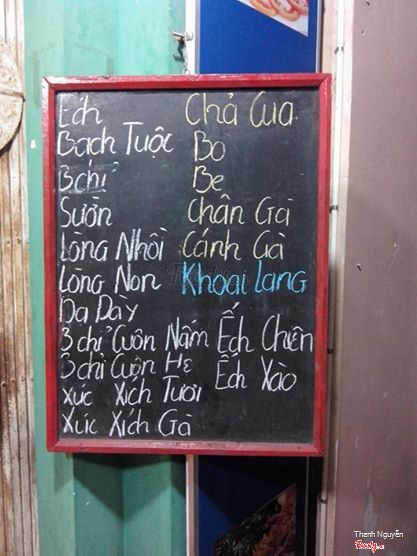 Ếch
Bạch Tuộc
3 chỉ
Sườn
Lòng Nhồi
Lòng Non
Dạ Dày
3 chỉ Cuộn Nấm
3 chỉ Cuộn Hẹ
Xúc Xích Tươi
Xúc Xích Gà
Chả Cua
Bò
Bê
Chân Gà
Cánh Gà
Khoai Lang
Ếch Chiên
Ếch Xào
Thanh Nguyễn
Foody.vn